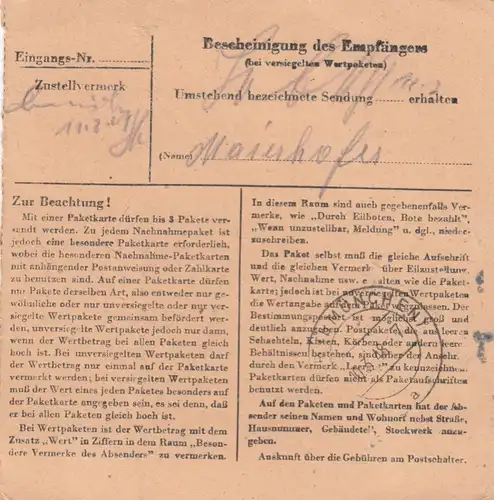 Eingangs-Nr.
Zustellvermerk
11.3.
Bescheinigung des Empfängers
(bei versiegelten Wertpaketen)
Umstehend bezeichnete Sendung ........ erhalten
(Name) Maierhofer
Zur Beachtung!
Mit einer Paketkarte dürfen bis 3 Pakete ver-
sandt werden. Zu jedem Nachnahmepaket ist
jedoch eine besondere Paketkarte erforderlich,
wobei die besonderen Nachnahme-Paketkarten
mit anhängender Postanweisung oder Zahlkarte
zu benutzen sind. Auf einer Paketkarte dürfen
nur Pakete derselben Art, also entweder nur ge-
wöhnliche oder nur unversiegelte oder nur ver-
siegelte Wertpakete gemeinsam befördert wer-
den, unversiegelte Wertpakete jedoch nur dann,
wenn der Wertbetrag bei allen Paketen gleich
hoch ist. Bei unversiegelten Wertpaketen darf
der Wertbetrag nur einmal auf der Paketkarte
vermerkt werden; bei versiegelten Wertpaketen
muß der Wert eines jeden Paketes besonders auf
der Paketkarte angegeben sein, es sei denn, daß
er bei allen Paketen gleich hoch ist.
Bei Wertpaketen ist der Wertbetrag mit dem
Zusatz „Wert" in Ziffern in dem Raum „Beson-
dere Vermerke des Absenders" zu vermerken.
In diesem Raum sind auch gegebenenfalls Ver-
merke, wie „Durch Eilboten, Bote bezahlt",
„Wenn unzustellbar, Meldung" u. dgl., nieder-
zuschreiben.
Das Paket selbst muß die gleiche Aufschrift
und die gleichen Vermerke über Eilzustellung,
Wert, Nachnahme usw. enthalten wie die Paket-
karte; jedoch ist bei versiegelten Wertpaketen
die Wertangabe auf dem Paket wegzulassen. Der
Bestimmungsort ist möglichst groß und
deutlich anzugeben. Postpakete, die aus leeren
Schachteln, Kisten, Körben oder andern leeren
Behältnissen bestehen, sind über der Anschr.
durch den Vermerk „Leer" zu kennzeichnen.
Paketkarten dürfen nicht als Paketaufschriften
benutzt werden.
Auf den Paketen und Paketkarten hat der Ab-
sender seinen Namen und Wohnort nebst Straße,
Hausnummer, Gebäudeteil, Stockwerk anzu-
geben.
Auskunft über die Gebühren am Postschalter.